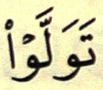 تَوَلَّوۡا۟